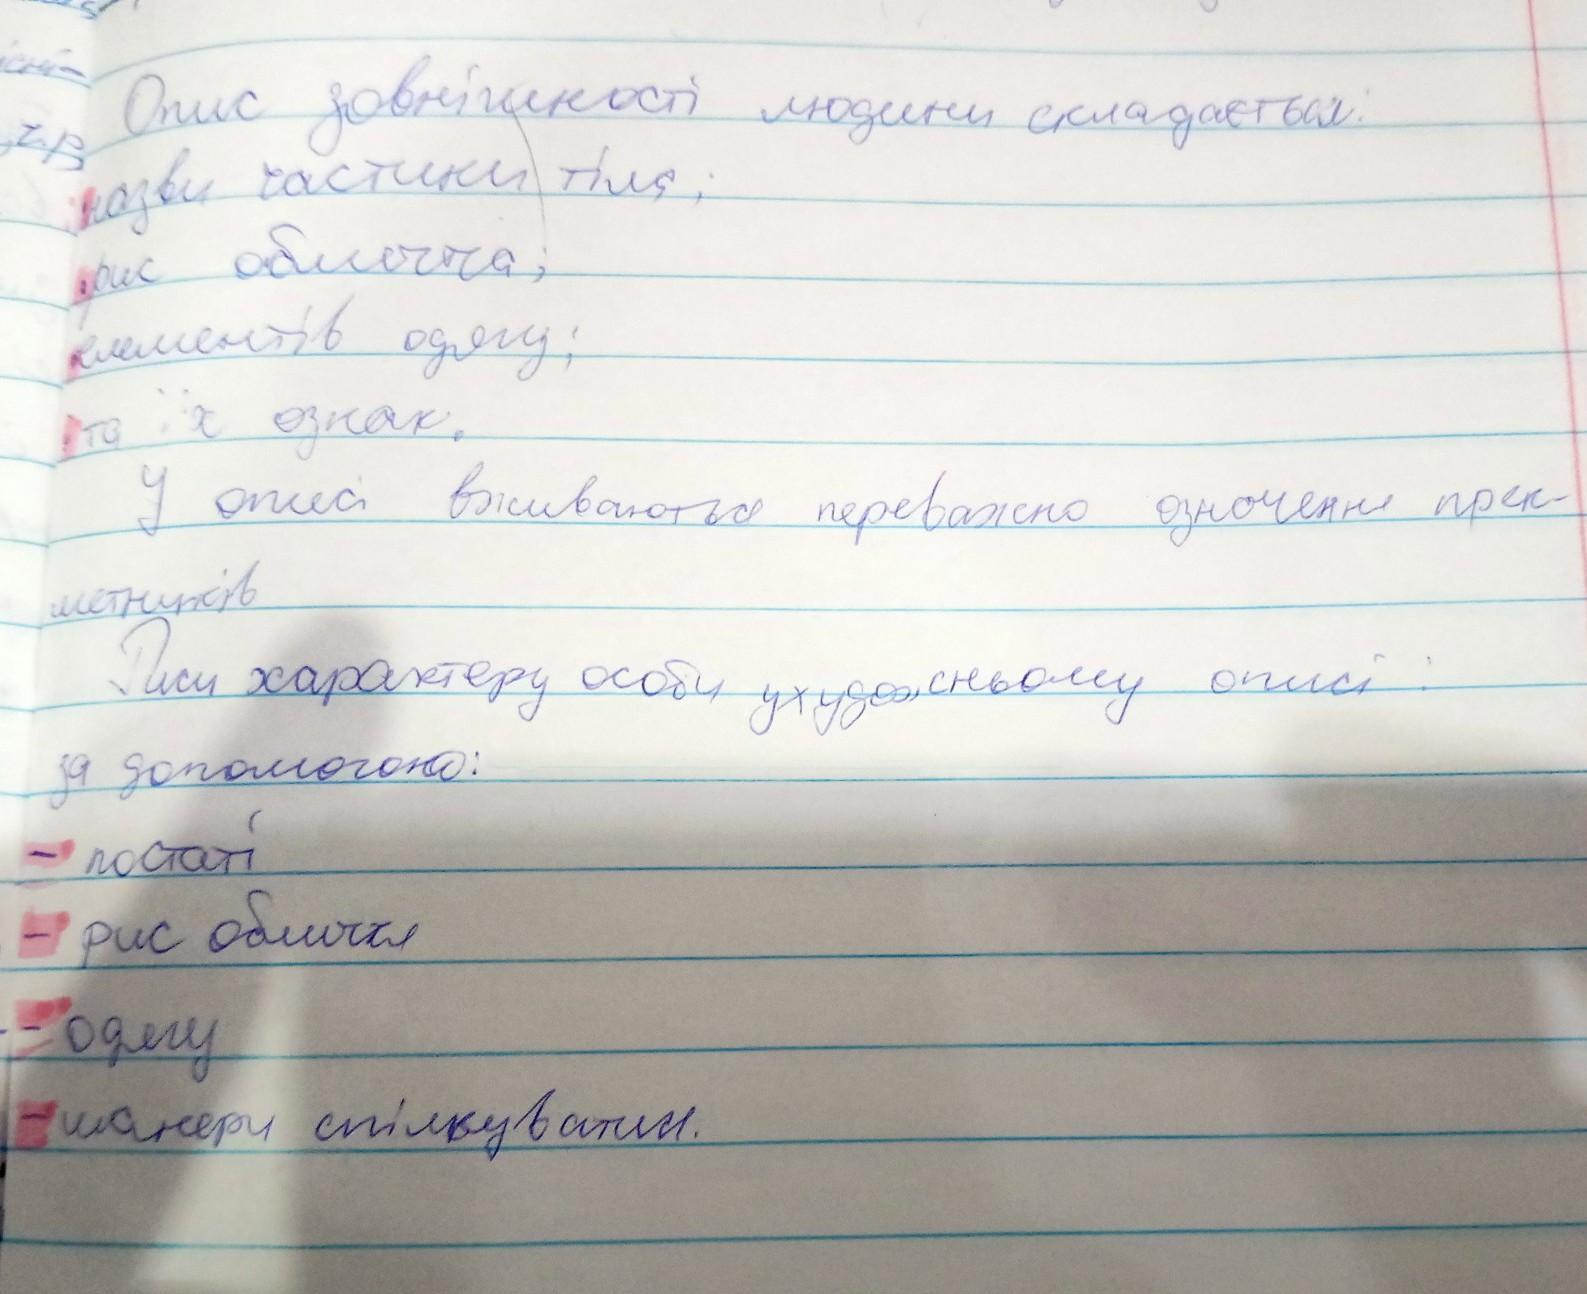 Опис зовнішності людини складається:
назви частини тіла;
рис обличча;
елементів одягу;
та їх ознак.
У описі вживаються переважно означення прек-
метників
Риси характеру особи у художньому описі :
за допомогою:
- постаті
- рис обличчя
- одягу
- манери спілкування.